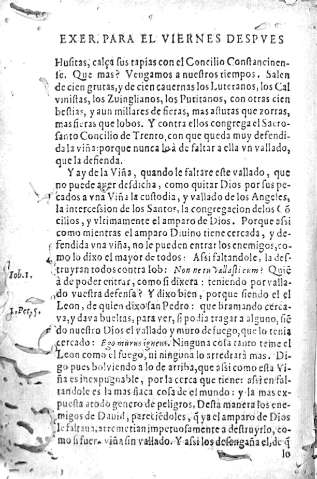 EXER. PARA EL VIERNES DESPVES
Husitas, calça sus tapias con el Concilio Constancinen-
se. Que mas? Vengamos a nuestros tiempos. Salen
de cien grutas, y de cien cauernas los Luteranos, los Cal
vinistas, los Zuinglianos, los Puritanos, con otras cien
bestias, y aun millares de fieras, mas astutas que zorras,
mas fieras que lobos. Y contra ellos congrega el Sacro-
santo Concilio de Trento, con que queda muy defendi-
da la viña: porque nunca le à de faltar a ella vn vallado,
que la defienda.
Y ay de la Viña, quando le faltare este vallado, que
no puede auer desdicha, como quitar Dios por sus pe-
cados a vna Viña la custodia, y vallado de los Angeles,
la intercession de los Santos, la congregacion de los Cõ
cilios, y vltimamente el amparo de Dios. Porque assi
como mientras el amparo Diuino tiene cercada, y de-
fendida vna viña, no le pueden entrar los enemigos, co-
mo lo dixo el mayor de todos: Assi faltandole, la des-
truyran todos contra Iob: Non ne tu vallasti eum? Quiẽ
Iob. 1.
à de poder entrar, como si dixera: teniendo por valla-
do vuestra defensa? Y dixo bien, porque siendo el el
Leon, de quien dixo san Pedro: que bramando cerca-
1. Pet. 5.
va, y dava bueltas, para ver, si podia tragar a alguno, siẽ
do nuestro Dios el vallado y muro de fuego, que lo tenia
cercado: Ego murus igneus. Ninguna cosa tanto teme el
Leon como el fuego, ni ninguna lo arredrarà mas. Di-
go pues bolviendo a lo de arriba, que assi como esta Vi-
ña es inexpugnable, por la cerca que tiene: assi en fal-
tandole es la mas flaca cosa de el mundo: y la mas ex-
puesta a todo genero de peligros. Desta manera los ene-
migos de Dauid, pareciẽdoles, q̃ ya el amparo de Dios
le faltaua, arremetian impetuosamente a destruyrlo, co-
mo si fuera viña sin vallado. Y assi los desengaña el, de q̃
lo